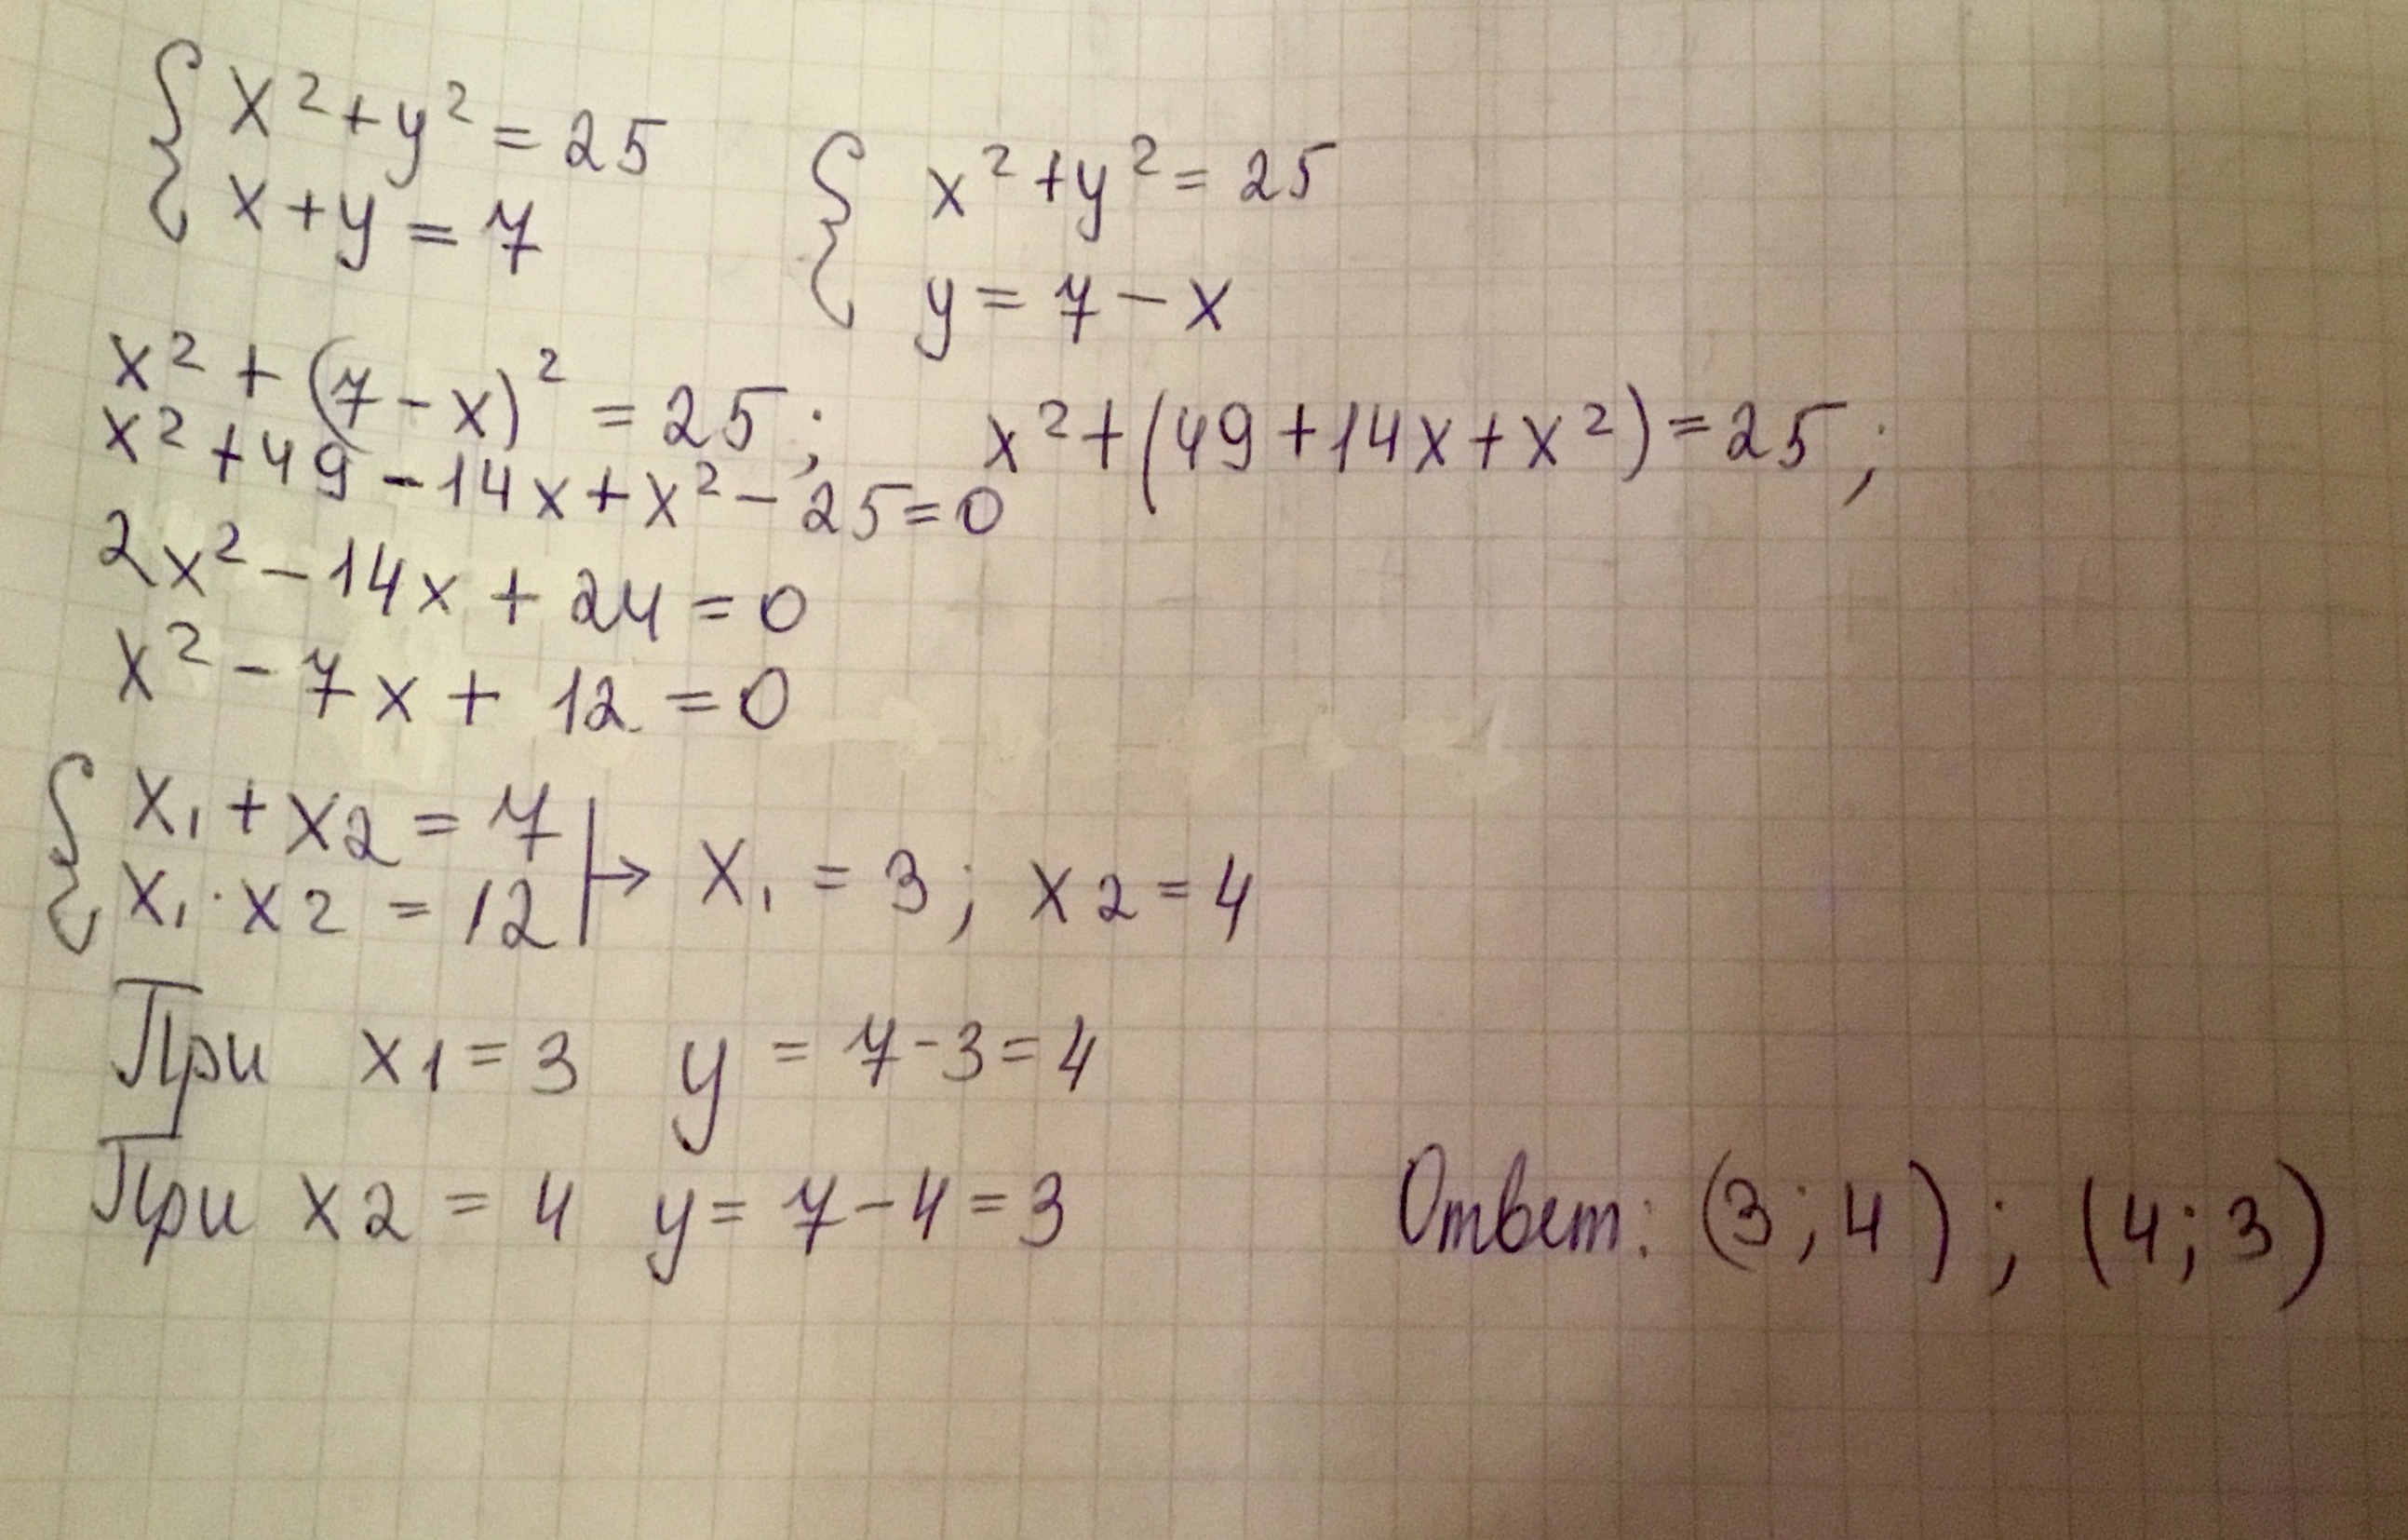 { x² + y² = 25
x + y = 7
{ x² + y² = 25
y = 7 - x
x² + (7 - x)² = 25; x² + (49 + 14x + x²) = 25;
x² + 49 - 14x + x² - 25 = 0
2x² - 14x + 24 = 0
x² - 7x + 12 = 0
{ x₁ + x₂ = 7
x₁ · x₂ = 12 |→ x₁ = 3; x₂ = 4
При x1 = 3 y = 7 - 3 = 4
При x2 = 4 y = 7 - 4 = 3 Ответ: (3; 4); (4; 3)